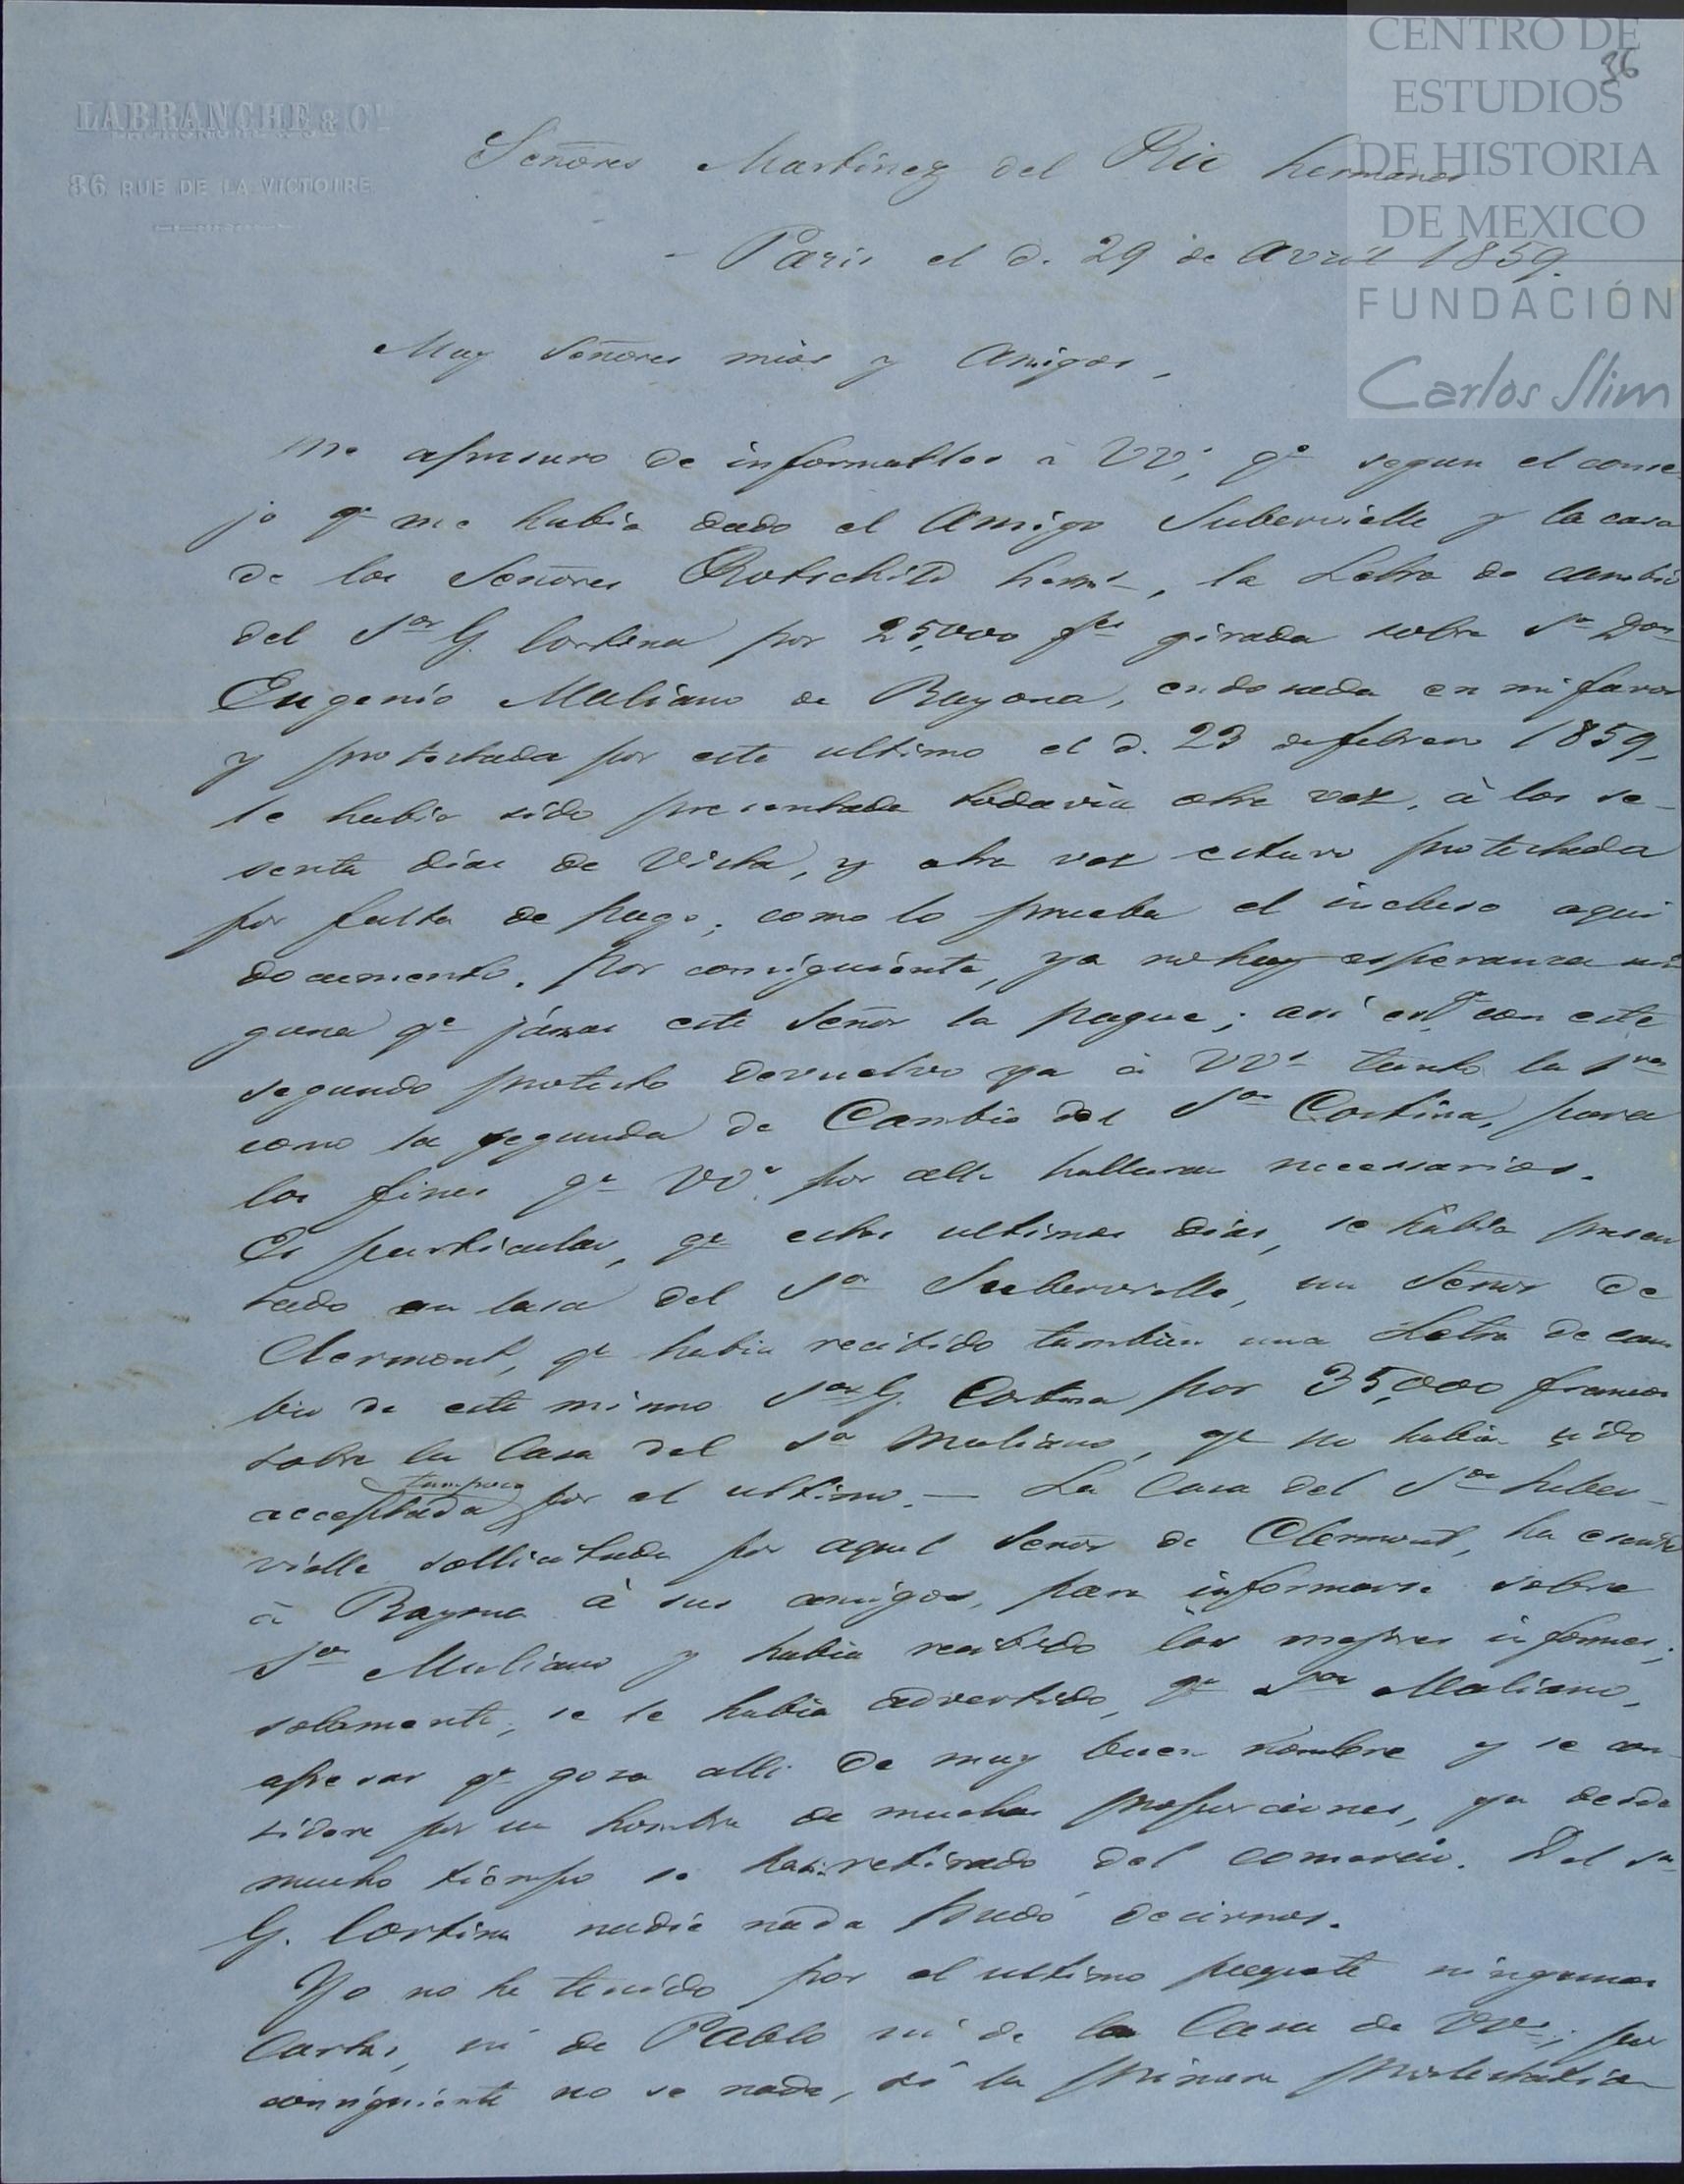 CENTRO DE
ESTUDIOS
DE HISTORIA
DE MEXICO
FUNDACIÓN
Carlos Slim
36
LABRANCHE & Cie
86 RUE DE LA VICTOIRE
Señores Martinez del Rio hermanos
Paris el d. 29 de Avril 1859.
Muy Señores mios y Amigos,
Me apresuro de informarles à VVs, qe segun el conse
jo qe me habia dado el Amigo Subervielle y la casa
de los Señores Rotschild herms, la Letra de cambio
del Sor G. Cortina por 25,000 fcs girada sobre Sr Don
Eugenio Maliano de Bayona, endosada en mi favor
y protestada por este ultimo el d. 23 de febrero 1859,
le habia sido presentada todavia otra vez, à los se-
senta dias de Vista, y otra vez estuvo protestada
por falta de pago, como lo prueba el incluso aqui
documento. Por consiguiente, ya no hay esperanza nin
guna qe jámas este Señor la pague; asi es qe con este
segundo protesto devuelvo ya à VVs tanto la 1ra
como la segunda de Cambio del Sor Cortina, para
los fines qe VVs por alla hallaran necessarios.
Es particular, qe estos ultimos dias, se habia presen
tado en Casa del Sor Subervielle, un Señor de
Clermont, qe habia recibido tambien una Letra de cam
bio de este mismo Sor G. Cortina por 35,000 francos
sobre la Casa del Sr Maliano, qe no habia sido
tampoco
acceptada por el ultimo. — La Casa del Sor Suber-
vielle sollicitada por aquel Señor de Clermont, ha escrito
à Bayona à sus amigos, para informarse sobre
Sor Maliano y habia recibido los mejores informes;
solamente, se le habia advertido, qe Sor Maliano,
apesar qe goza alli de muy buen nombre y se con-
sidere por un hombre de muchas proporciones, ya desde
mucho tiempo se ha retirado del comercio. Del Sr
G. Cortina nadie nada pudó decirnos.
Yo no he tenido por el ultimo paquete ningunas
Cartas, ni de Pablo ni de la Casa de VVs; por
consiguiente no se nada, si la primera protestation